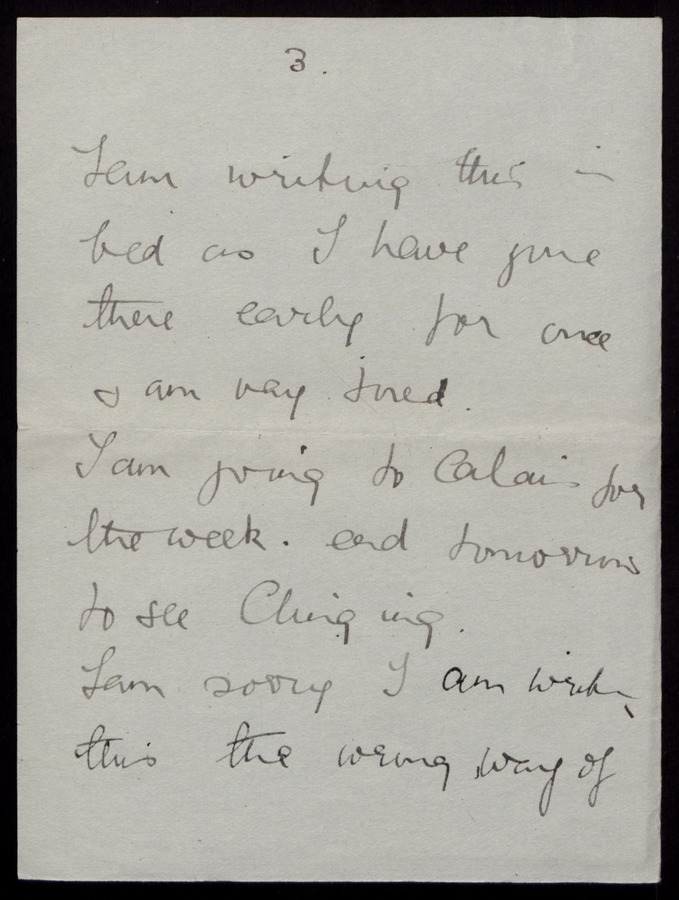 3.
I am writing this in
bed as I have gone
there early for once
& am very tired.
I am going to Calais for
the week-end tomorrow
to see Ching ing.
I am sorry I am writing
this the wrong way of